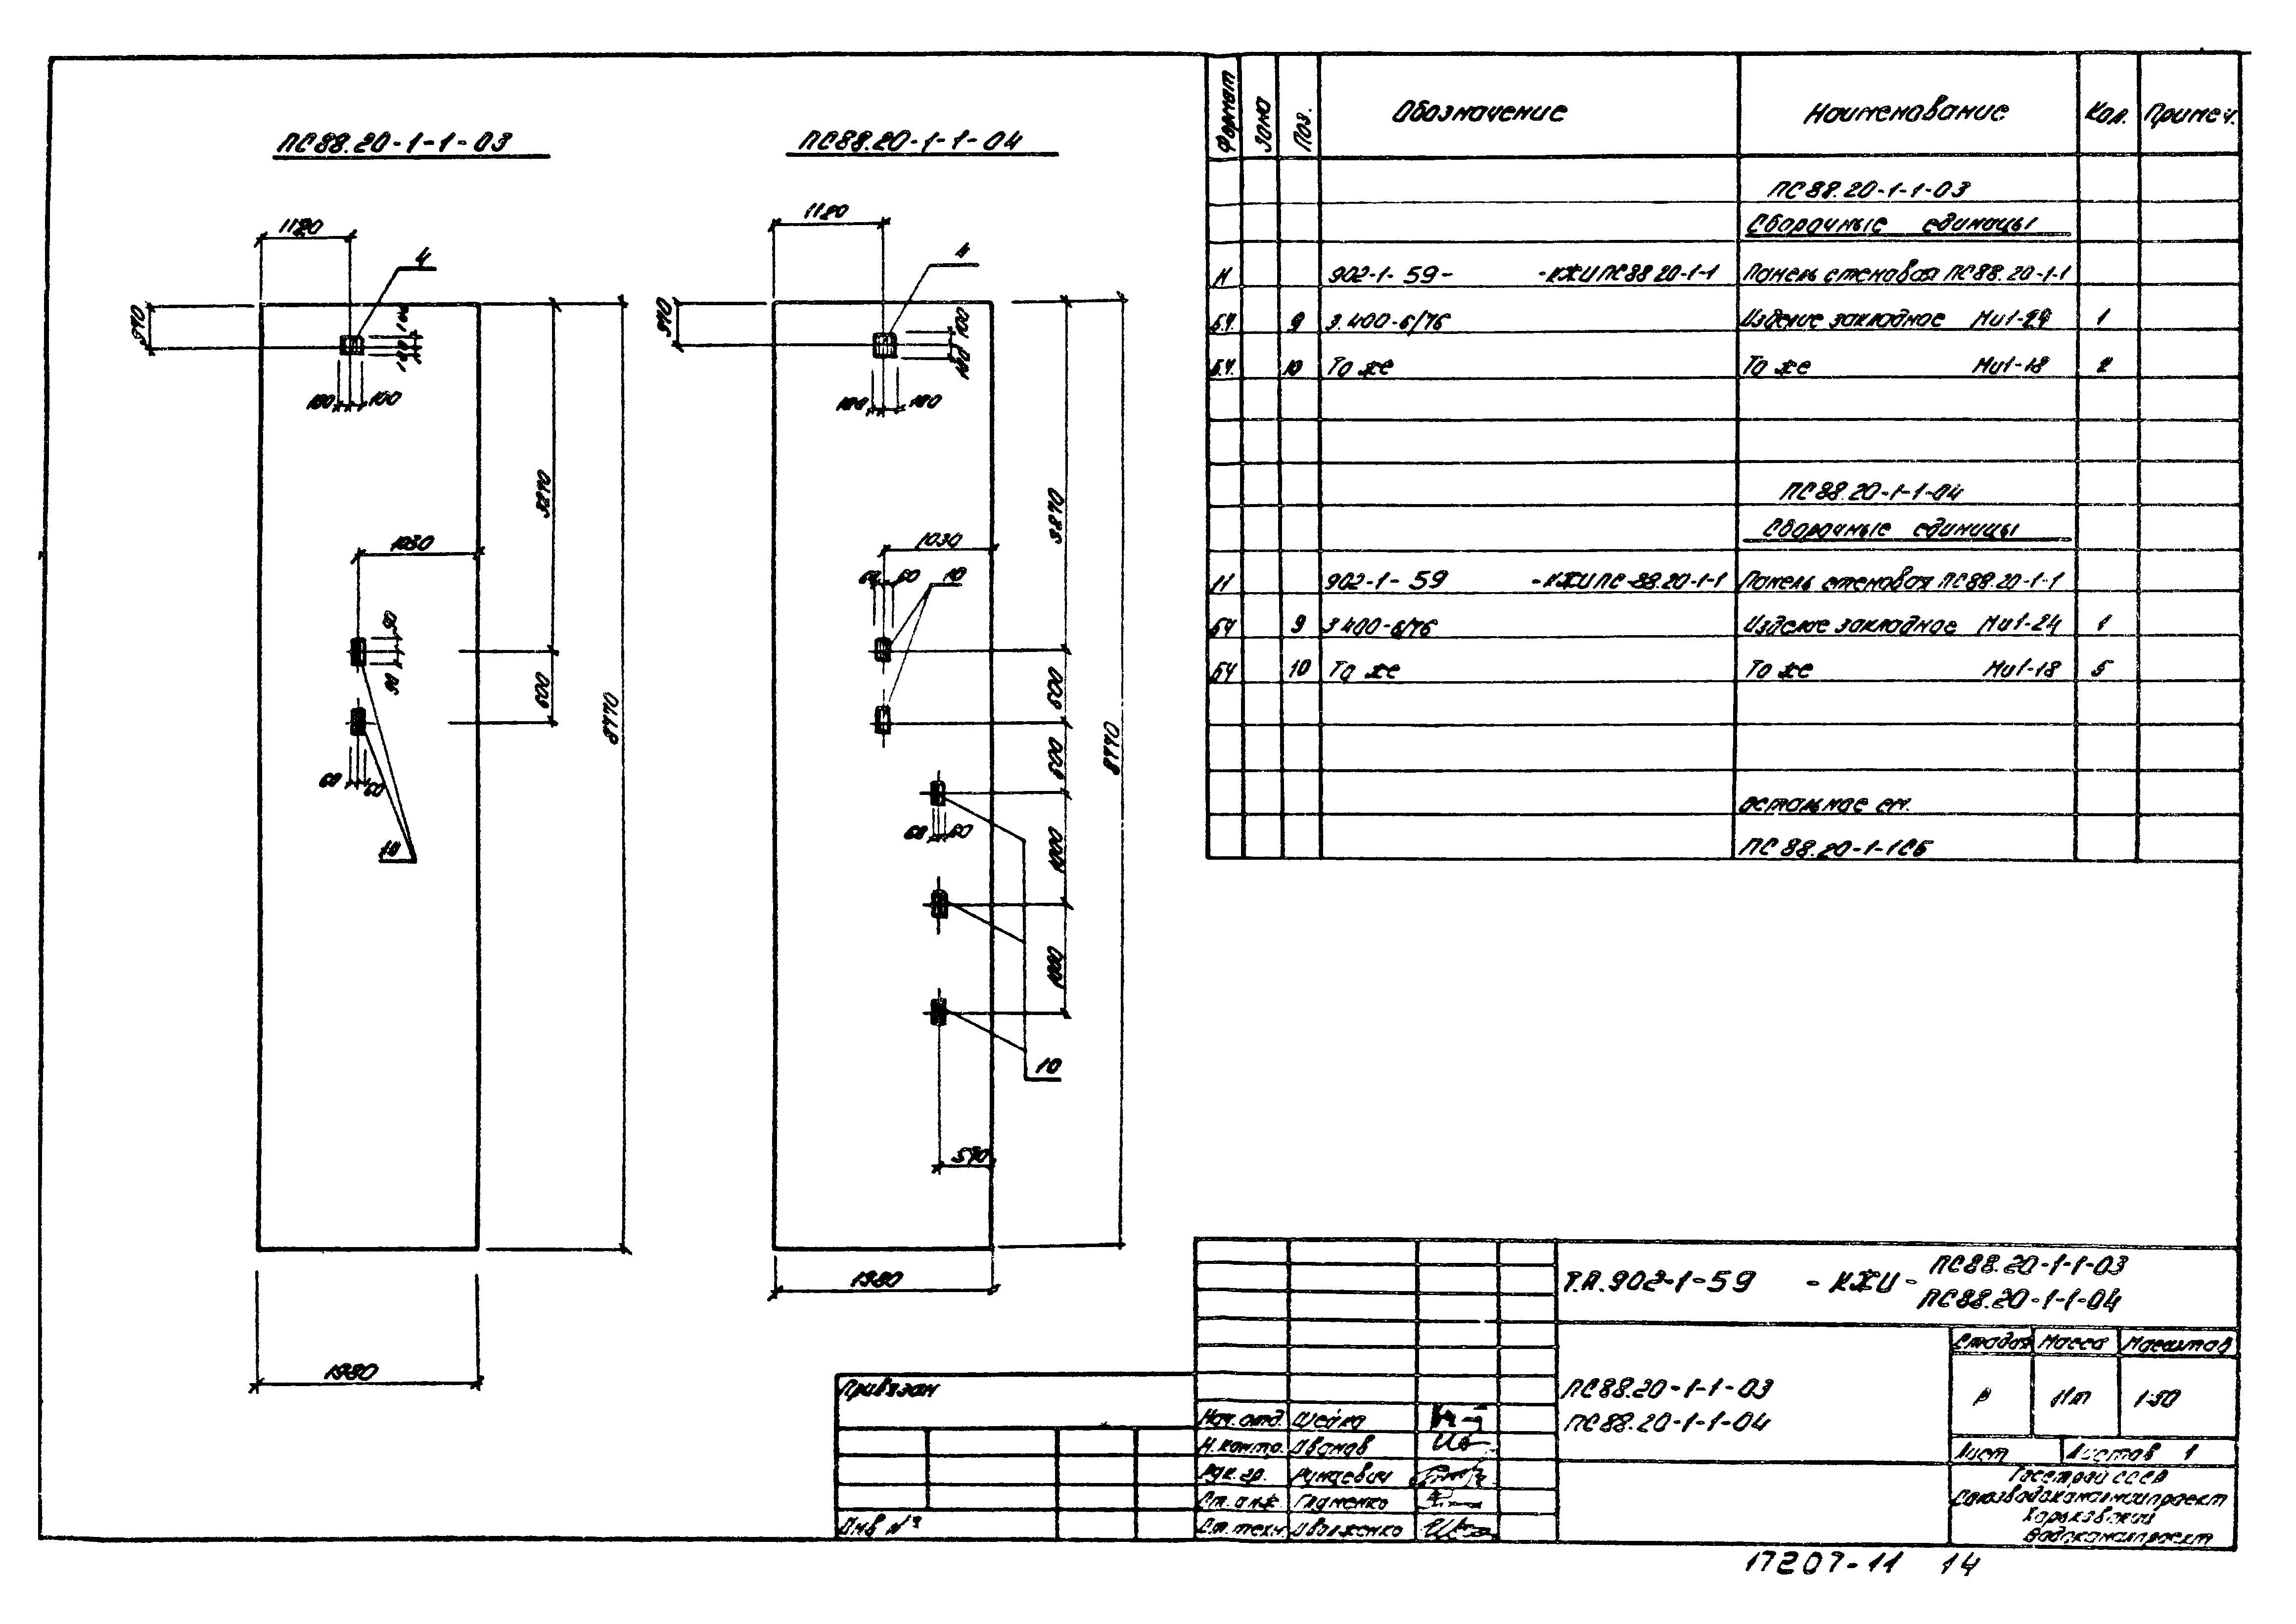 ПС88.20-1-1-03
1120
4
100
100
100
3270
1030
90
90
600
8770
60
60
10
1980
ПС88.20-1-1-04
1120
4
370
100
100
100
100
3270
1030
60
60
10
600
600
8770
60
60
1000
1000
10
540
1980
Формат
Зона
Поз.
Обозначение
Наименование
Кол.
Примеч.
ПС88.20-1-1-03
Сборочные единицы
902-1-59- -КЖИ ПС88 20-1-1 Панель стеновая ПС88.20-1-1
Б.Ч. 9 3.400-6/76 Изделие закладное Ми1-24 1
Б.Ч. 10 То же То же Ми1-18 2
ПС88.20-1-1-04
Сборочные единицы
902-1-59 -КЖИ ПС-88.20-1-1 Панель стеновая ПС88.20-1-1
БЧ 9 3 400-6/76 Изделие закладное Ми1-24 1
БЧ 10 То же То же Ми1-18 5
остальное см.
ПС 88.20-1-1СБ
Т.П.902-1-59 -КЖИ- ПС88.20-1-1-03
ПС88.20-1-1-04
ПС88.20-1-1-03
ПС88.20-1-1-04
Стадия Масса Масштаб
Р 1:50
Лист Листов 1
Госстрой СССР
Союзводоканалниипроект
Харьковский
Водоканалпроект
Привязан
Инв №
Нач. отд. Шейко
Н. контр. Иванов
Рук. гр.
Ст. инж.
Ст. техн.
17207-11 14